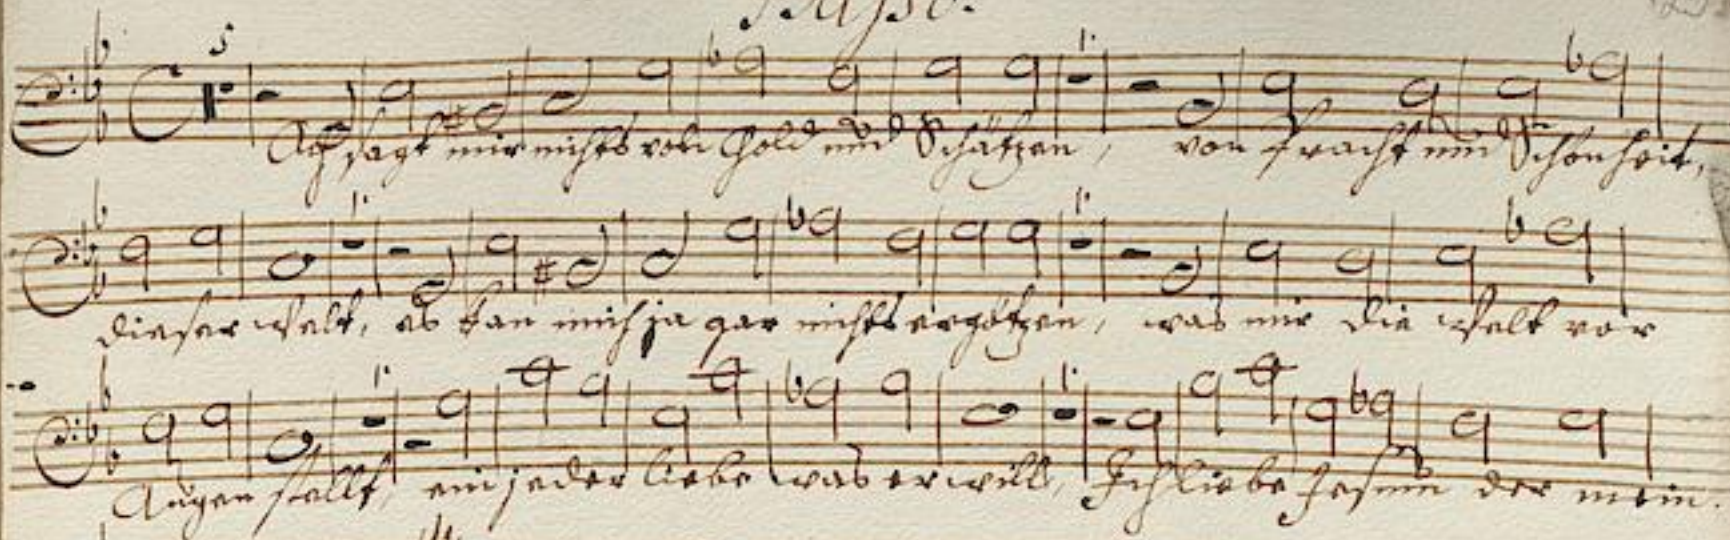 Basso.
5
Ach sagt mir nichts von Gold und Schätzen, von Pracht und Schönheit,
1. 
dieser welt, es kan mich ja gar nichts ergötzen, was mir die Welt vor
1. 1.
Augen stellt, ein jeder liebe was er will, Ich liebe Jesum der mein
1. 1.